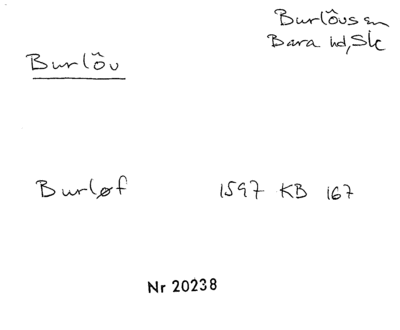 Burlôus sn
Bara hd, Sk
Burlôv
Burløf 1597 KB 167
Nr 20238